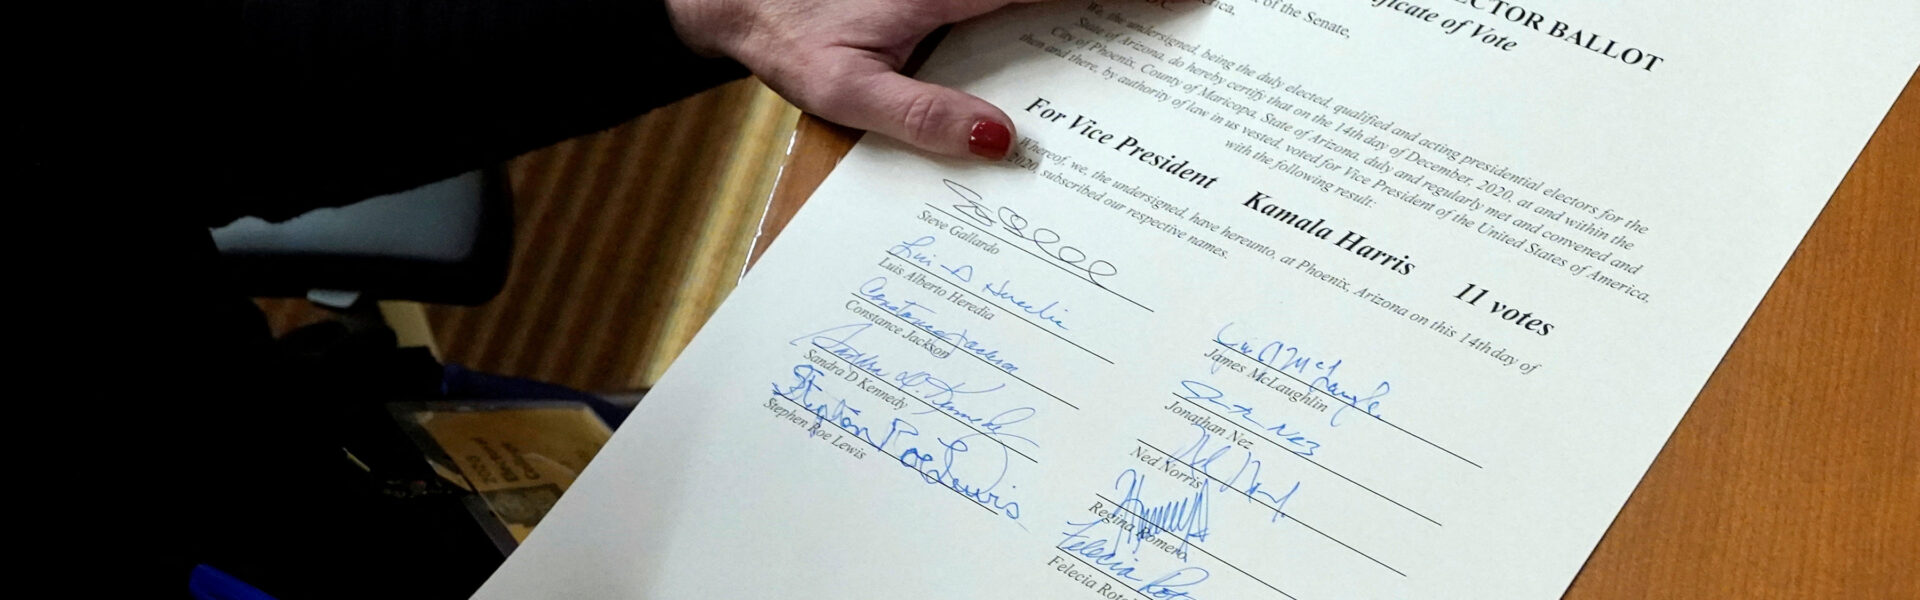 ECTOR BALLOT
ificate of Vote
of the Senate,
erica,
We, the undersigned, being the duly elected, qualified and acting presidential electors for the
State of Arizona, do hereby certify that on the 14th day of December, 2020, at and within the
City of Phoenix, County of Maricopa, State of Arizona, duly and regularly met and convened and
then and there, by authority of law in us vested, voted for Vice President of the United States of America,
with the following result:
For Vice President Kamala Harris 11 votes
Whereof, we, the undersigned, have hereunto, at Phoenix, Arizona on this 14th day of
2020, subscribed our respective names.
Steve Gallardo
Luis A Heredia
Luis Alberto Heredia
Constance Jackson
Constance Jackson
Sandra D Kennedy
Sandra D Kennedy
Stephen Roe Lewis
Stephen Roe Lewis
James McLaughlin
Jonathan Nez
Ned Norris
Regina Romero
Felecia Rot
Felecia Rot